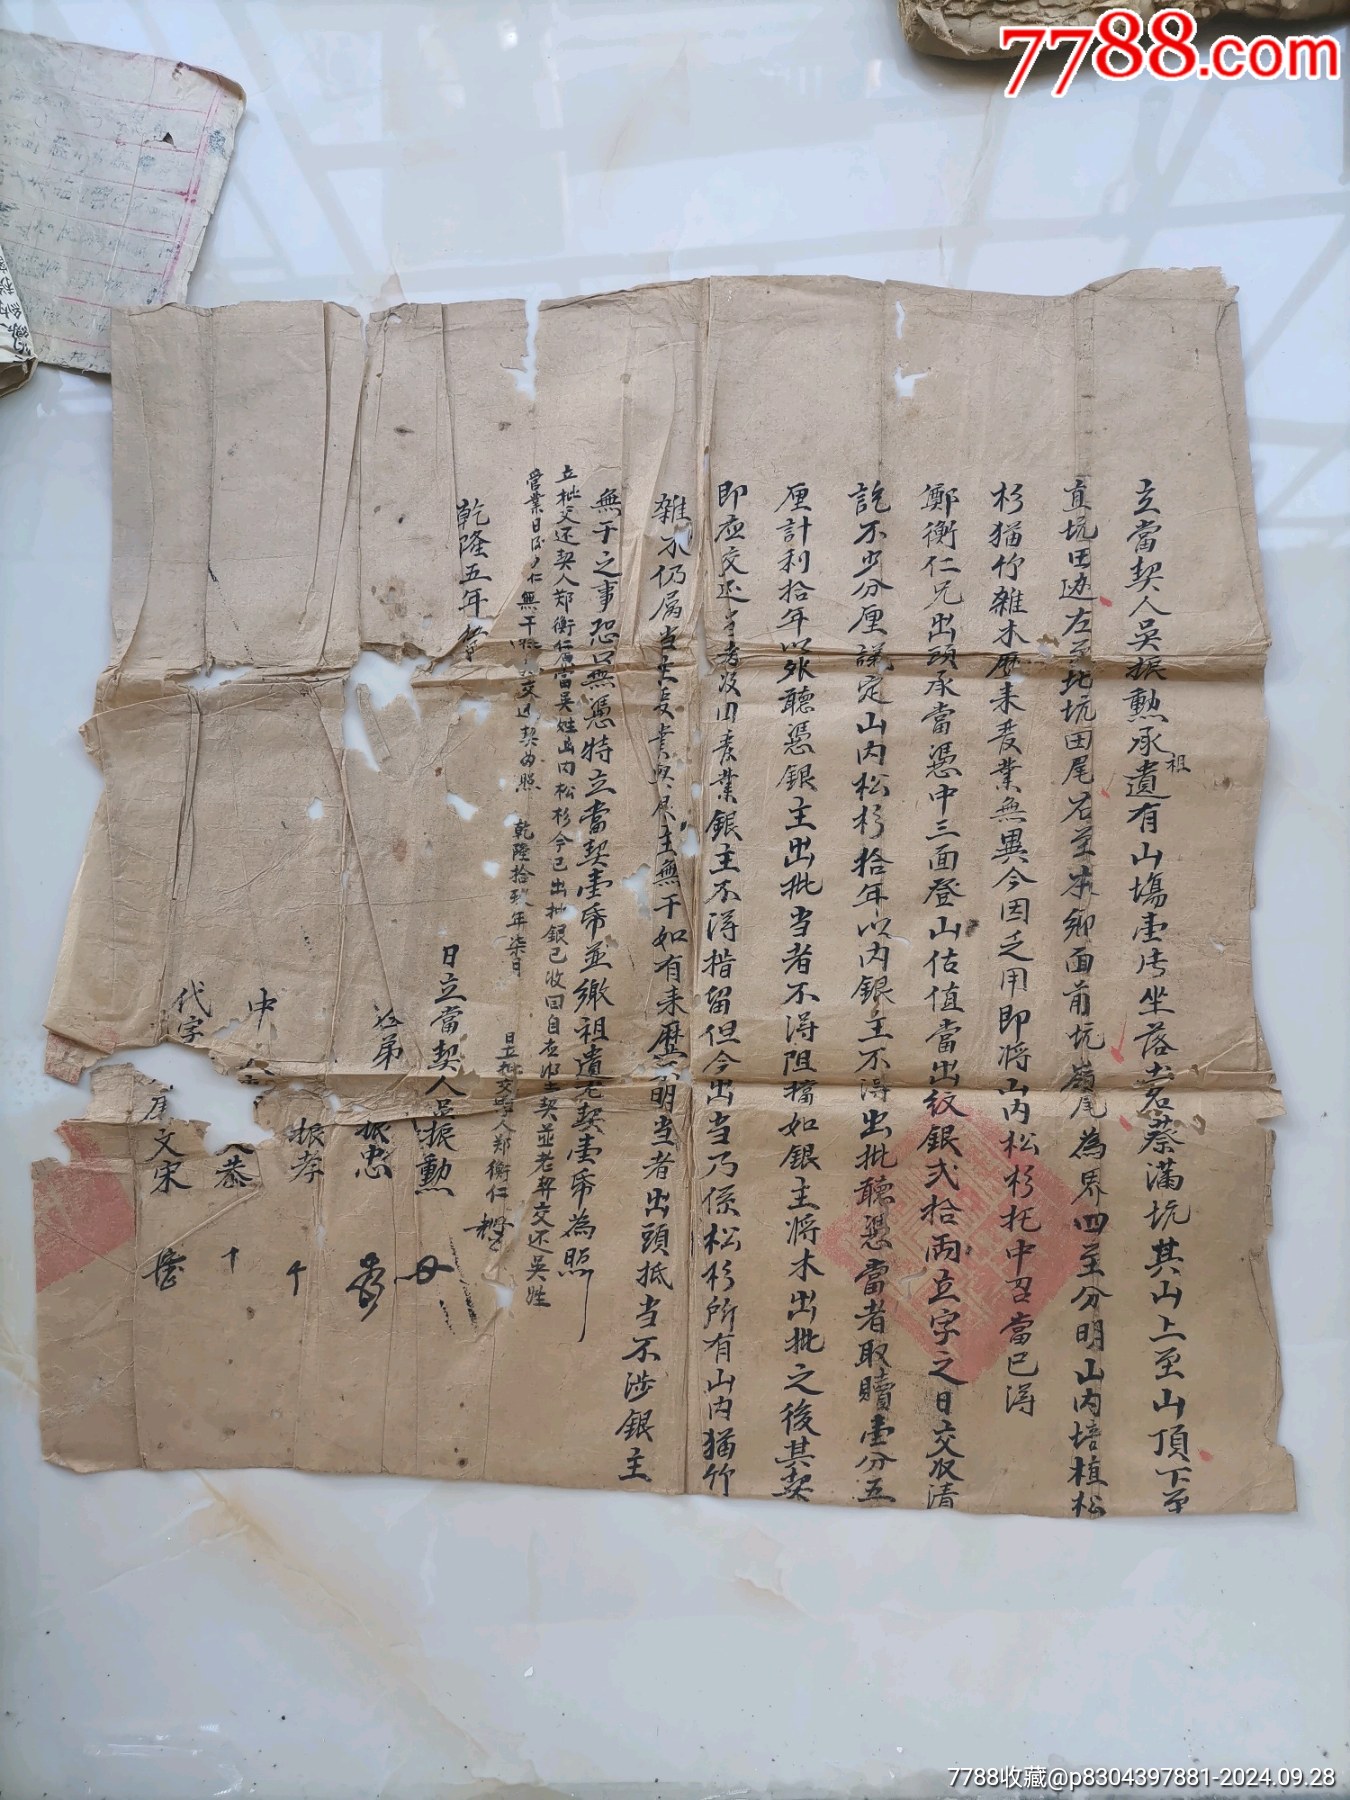 7788.com
立當契人吳振勲承祖遺有山塲壹片坐落岩蔡滿坑其山上至山頂下至
直坑田边左至北坑田尾右至本鄉面前坑嶺尾為界四至分明山内培植松
杉猫竹雜木歷来管業無異今因乏用即將山内松杉托中召當已得
鄭衡仁兄出頭承當憑中三面登山估值當出紋銀弍拾両立字之日交收清
訖不少分厘議定山内松杉拾年以内銀主不得出批聽憑當者取贖壹分五
厘計利拾年以外聽憑銀主出批当者不得阻擋如銀主將木出批之後其契
即應交还当者收回管業銀主不得措留但今出当乃係松杉所有山内猫竹
雜木仍属当主管業與銀主無干如有来歷不明当者出頭抵当不涉銀主
無干之事恐口無憑特立當契壹帋並繳祖遺老契壹帋為照
立批交还契人郑衡仁原當吳姓山内松杉今已出批銀已收回自應將当契並老契交还吳姓
營業日后衡仁無干批交还契為照 乾隆拾玖年柒月 日立批交契人郑衡仁
乾隆五年 日立當契人吳振勲
弟 振忠
振孝
中 恭
代字 文宋
7788收藏@p8304397881-2024.09.28